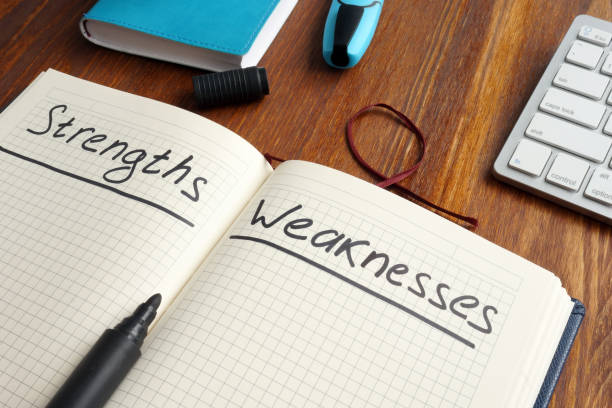 Strengths
Weaknesses
esc
tab
caps lock
shift
fn
control
alt
option